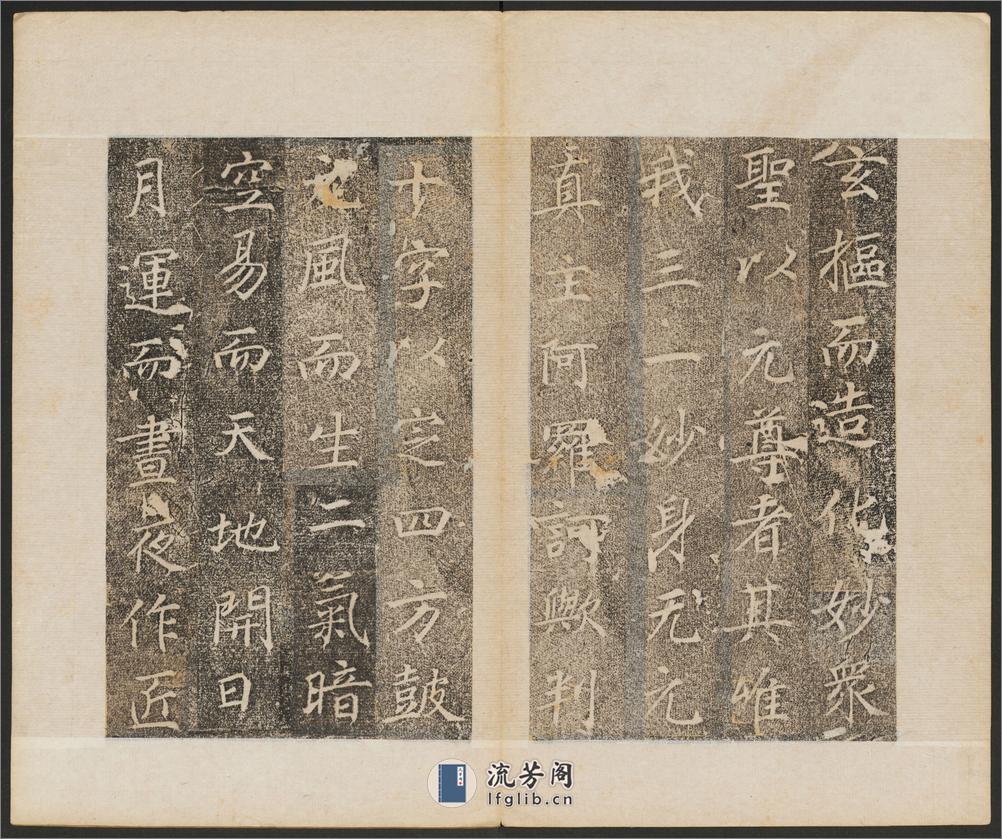 玄摳而造化妙衆
聖以元尊者其唯
我三一妙身无元
真主阿羅訶歟判
十字以定四方鼓
元風而生二氣暗
空易而天地開日
月運而晝夜作匠
流芳阁
lfglib.cn